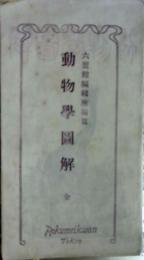 六盟館編輯所編纂
動物學圖解
全
Rokumeikwan
Tokyo